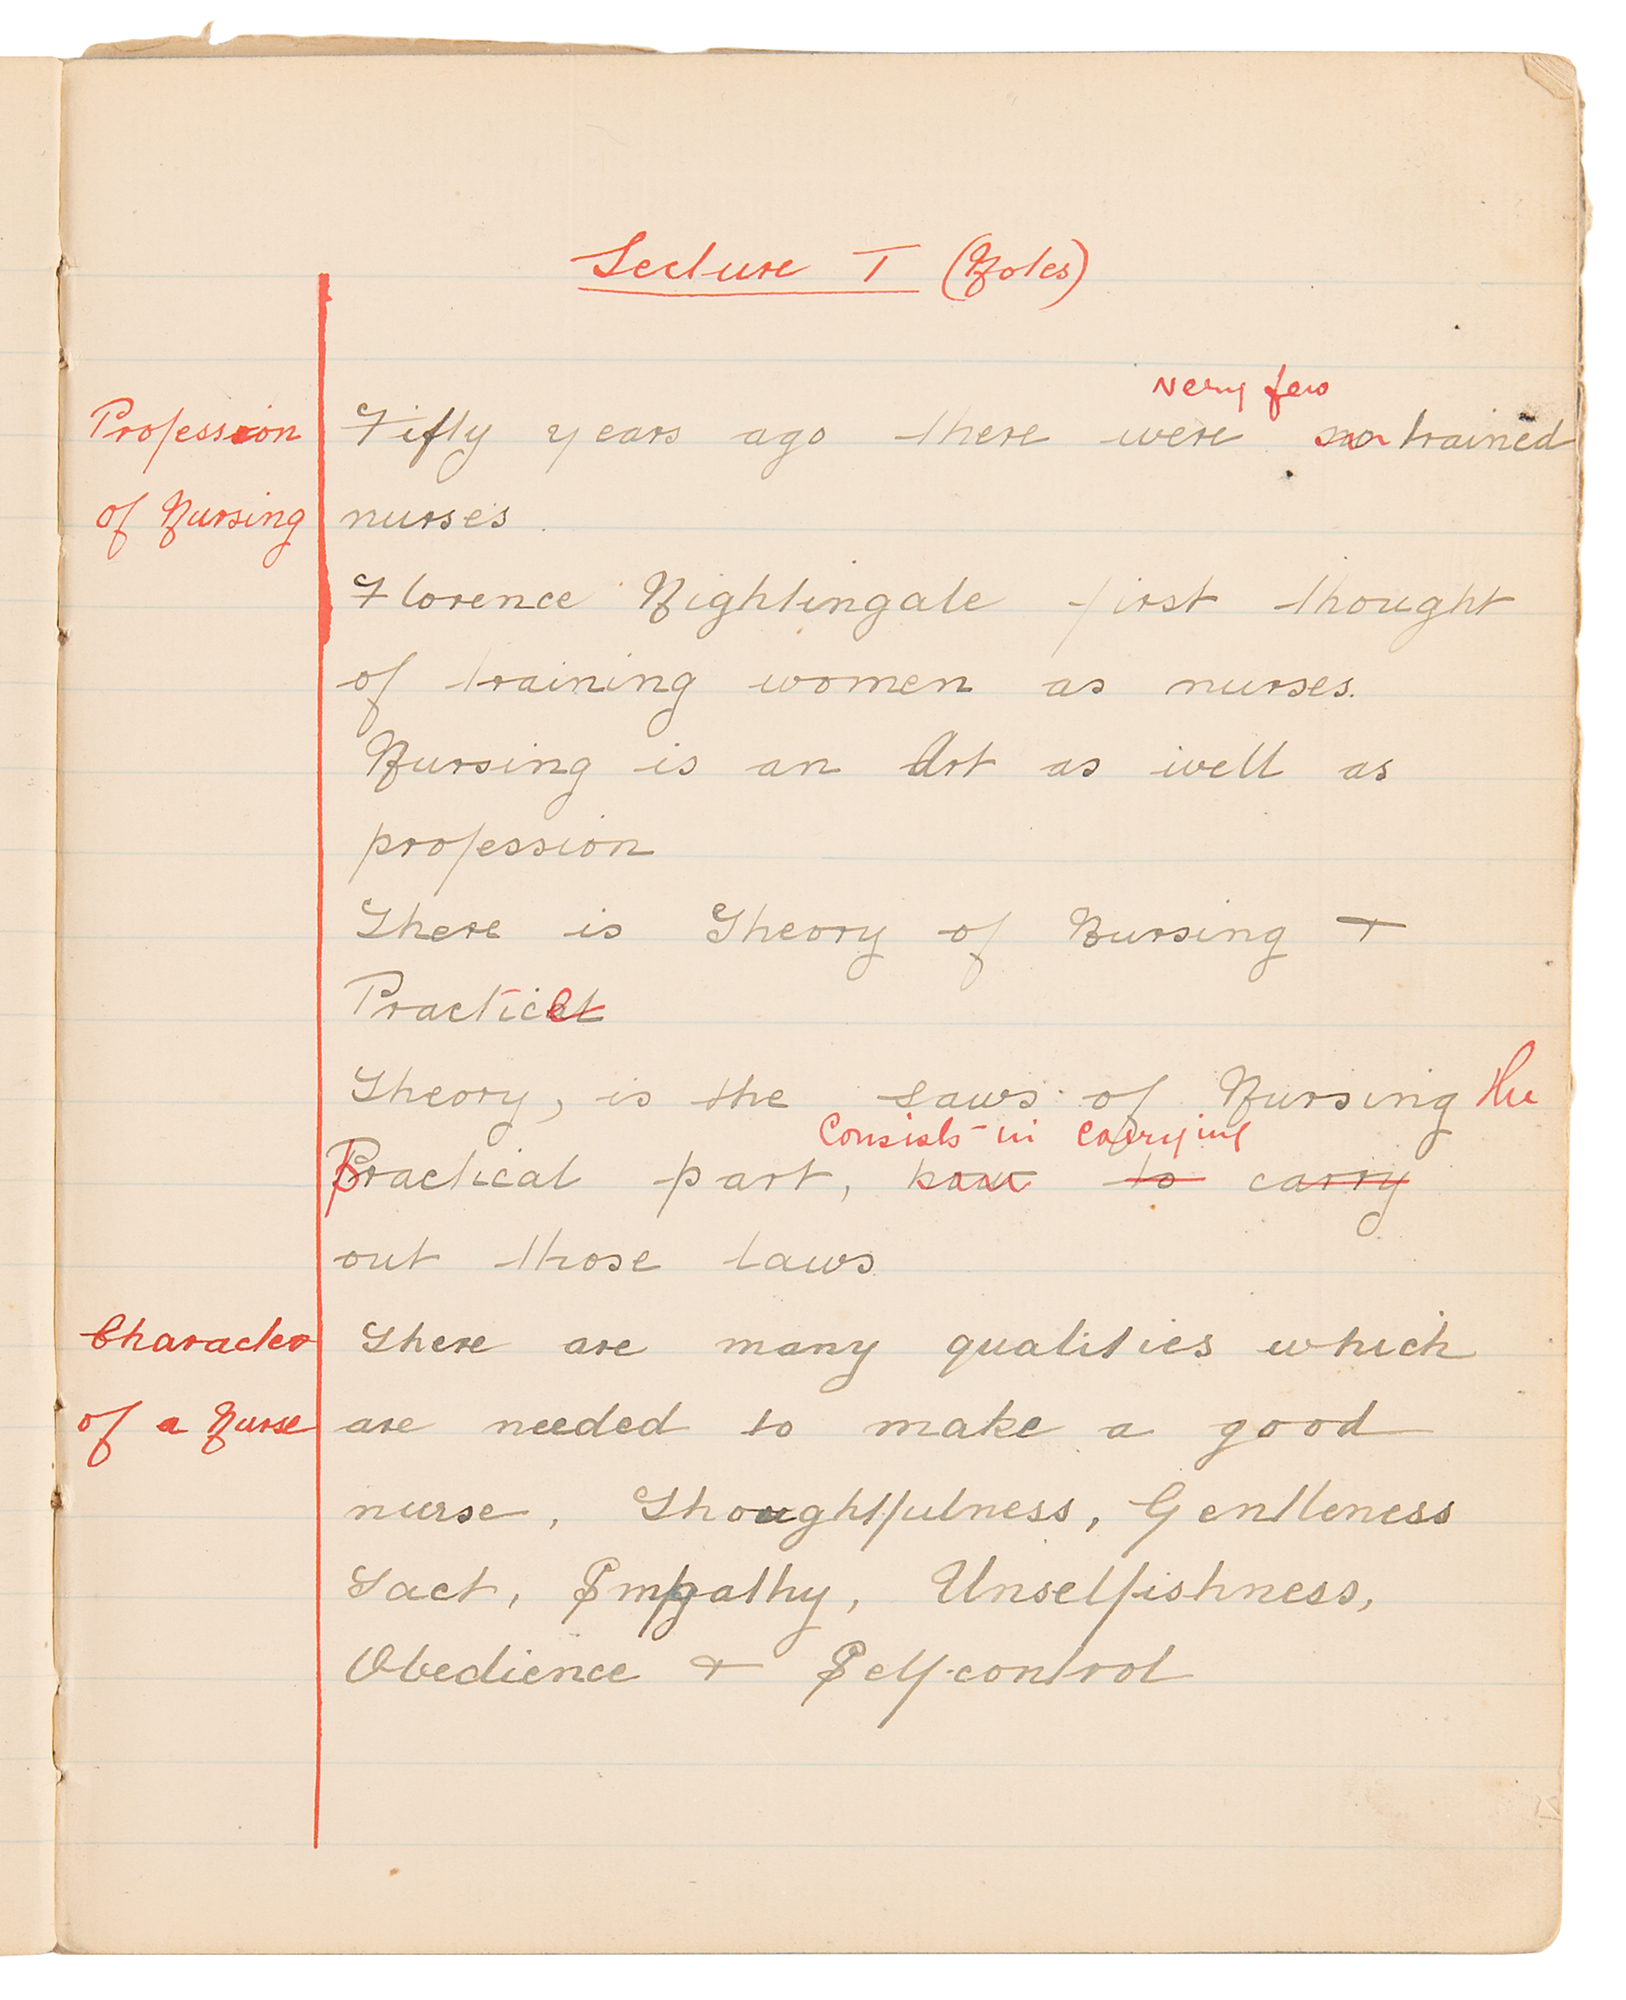 Lecture I (Notes)
very few
Profession Fifty years ago there were no trained
of Nursing nurses.
Florence Nightingale first thought
of training women as nurses.
Nursing is an Art as well as
profession
There is Theory of Nursing +
Practice
Theory, is the Laws of Nursing the
Consists in carrying
Practical part, how to carry
out those laws
Character There are many qualities which
of a Nurse are needed to make a good
nurse, Thoughtfulness, Gentleness
Tact, Sympathy, Unselfishness,
Obedience + Self-control